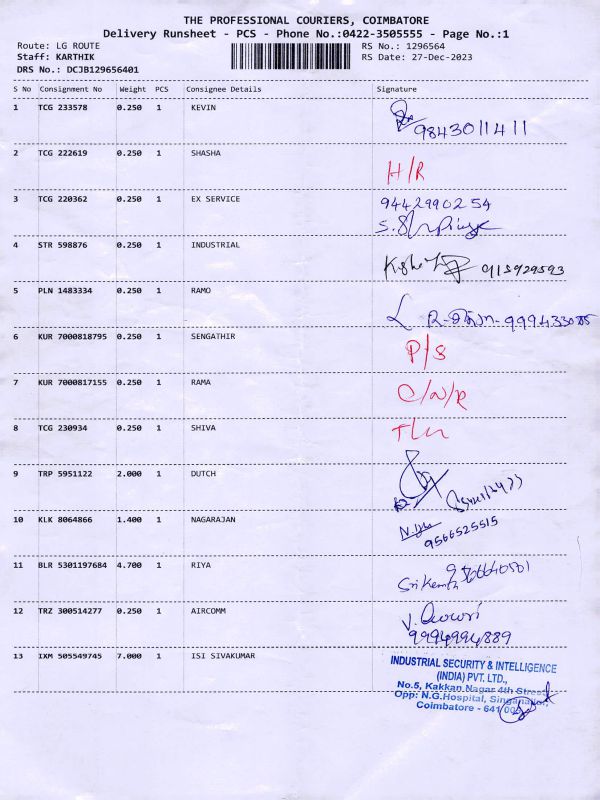 THE PROFESSIONAL COURIERS, COIMBATORE
Delivery Runsheet - PCS - Phone No.:0422-3505555 - Page No.:1
Route: LG ROUTE RS No.: 1296564
Staff: KARTHIK RS Date: 27-Dec-2023
DRS No.: DCJB129656401
S No Consignment No Weight PCS Consignee Details Signature
1 TCG 233578 0.250 1 KEVIN
9843011411
2 TCG 222619 0.250 1 SHASHA
H/R
3 TCG 220362 0.250 1 EX SERVICE 9442990254
4 STR 598876 0.250 1 INDUSTRIAL
5 PLN 1483334 0.250 1 RAMO
6 KUR 7000818795 0.250 1 SENGATHIR P/S
7 KUR 7000817155 0.250 1 RAMA C/N/R
8 TCG 230934 0.250 1 SHIVA
9 TRP 5951122 2.000 1 DUTCH
10 KLK 8064866 1.400 1 NAGARAJAN
9566525515
11 BLR 5301197684 4.700 1 RIYA
12 TRZ 300514277 0.250 1 AIRCOMM
9994994889
13 IXM 505549745 7.000 1 ISI SIVAKUMAR
INDUSTRIAL SECURITY & INTELLIGENCE
(INDIA) PVT. LTD.,
No.5, Kakkan Nagar 4th Street,
Opp: N.G.Hospital, Singanallur,
Coimbatore - 641